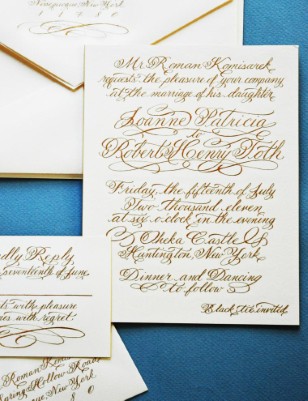 New York
1 9 7 8 0
Mr. Roman Komisarek
requests the pleasure of your company
at the marriage of his daughter
Joanne Patricia
to
Robert Henry Toth
Friday, the fifteenth of July
Two thousand eleven
at six o'clock in the evening
Oheka Castle
Huntington, New York
Dinner and Dancing
to follow
Black tie invited
Reply
seventeenth of June
with pleasure
with regret
Hollow
New York